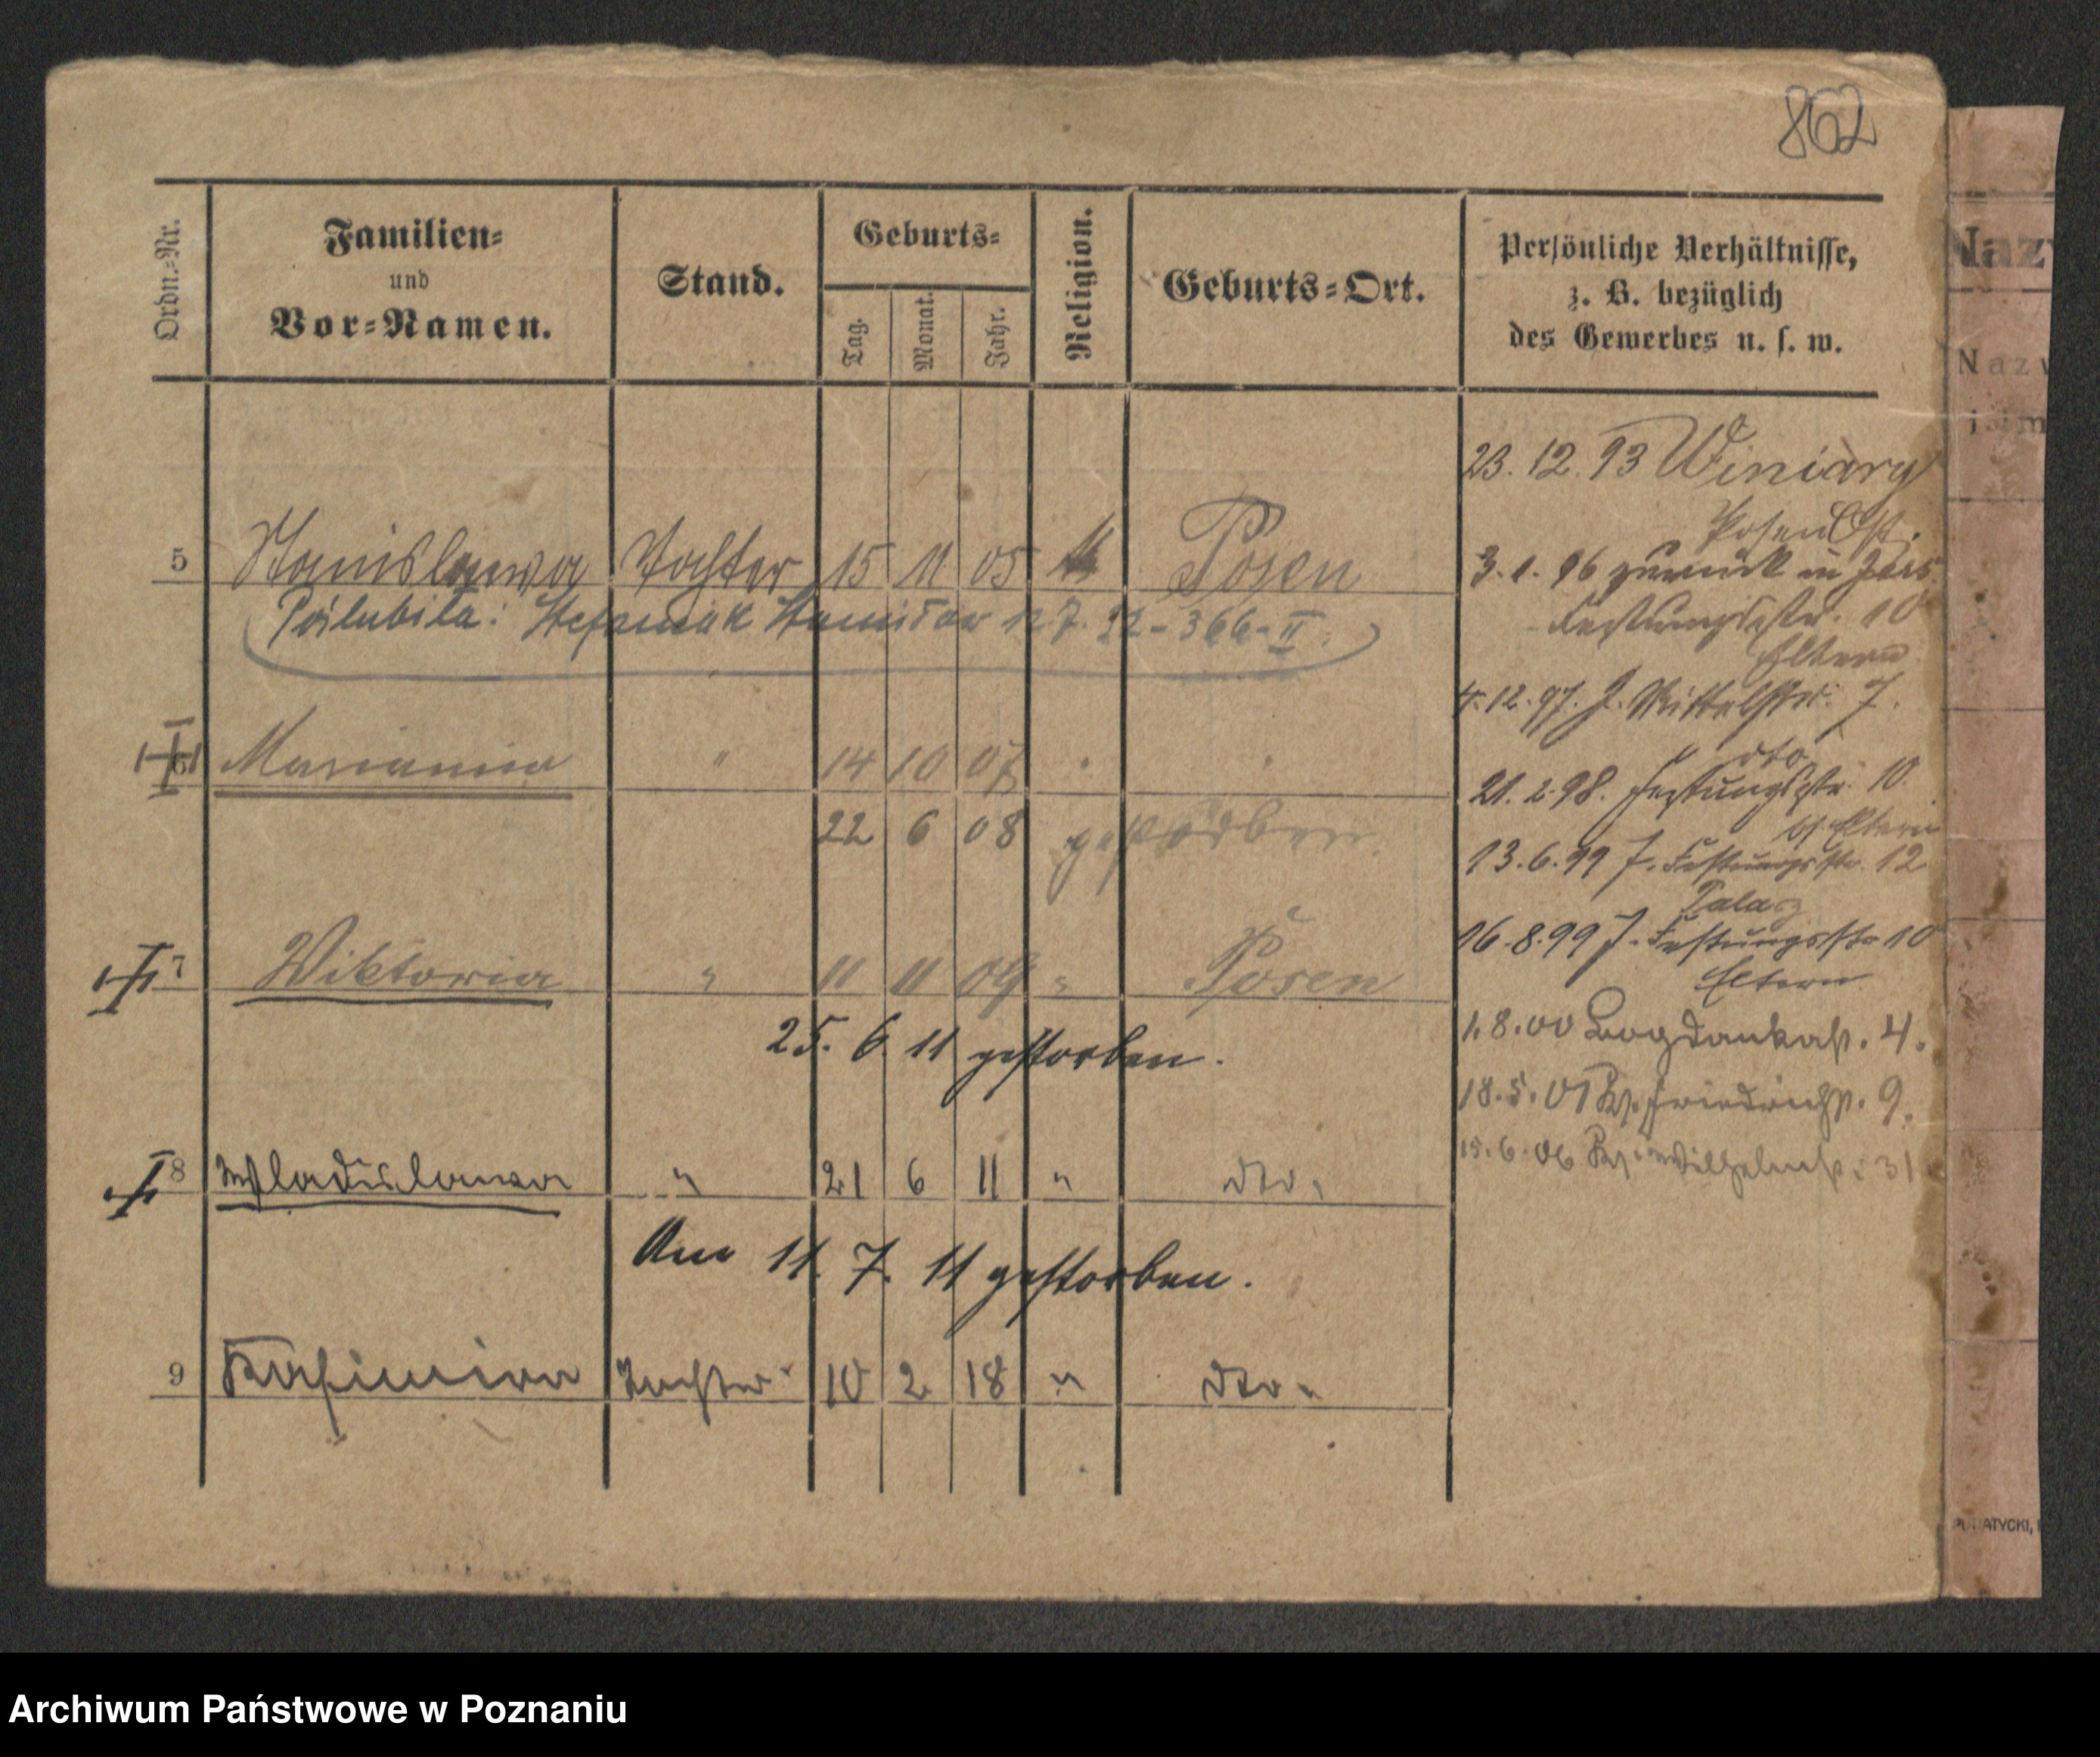 862
Ordn.-Nr.
Familien-
und
Vor-Namen.
Stand.
Geburts-
Tag.
Monat.
Jahr.
Religion.
Geburts-Ort.
Persönliche Verhältnisse,
z. B. bezüglich
des Gewerbes u. s. w.
5 Stanislawa Tochter 15 11 05 Posen
Poślubiła: Stefaniak Stanisław 12 7. 22 - 366 - II
6 Marianna " 14 10 07
22 6 08 gestorben
7 Wiktoria " 11 11 09 " Posen
25. 6. 11 gestorben.
8 Wladislawa " 21 6 11 " dto.
Am 11. 7. 11 gestorben.
9 Kasimira Tochter 10 2 18 " dto.
23. 12. 93 Winiary
Posen Ost.
3. 1. 96 zurück in
Festungsstr. 10
Eltern
4. 12. 97. J. Mittelstr. 7.
dto
21. 2. 98. Festungsstr. 10
bf Eltern
13. 6. 99 J. Festungsstr. 12
Palacz
16. 8. 99 J. Festungsstr 10
Eltern
1. 8. 00 Bogdankast. 4.
18. 5. 01 Kl. Friedrichst. 9.
15. 6. 06 Wilhelmst. 31
Naz
Naz
i im
ATYCKI,
Archiwum Państwowe w Poznaniu